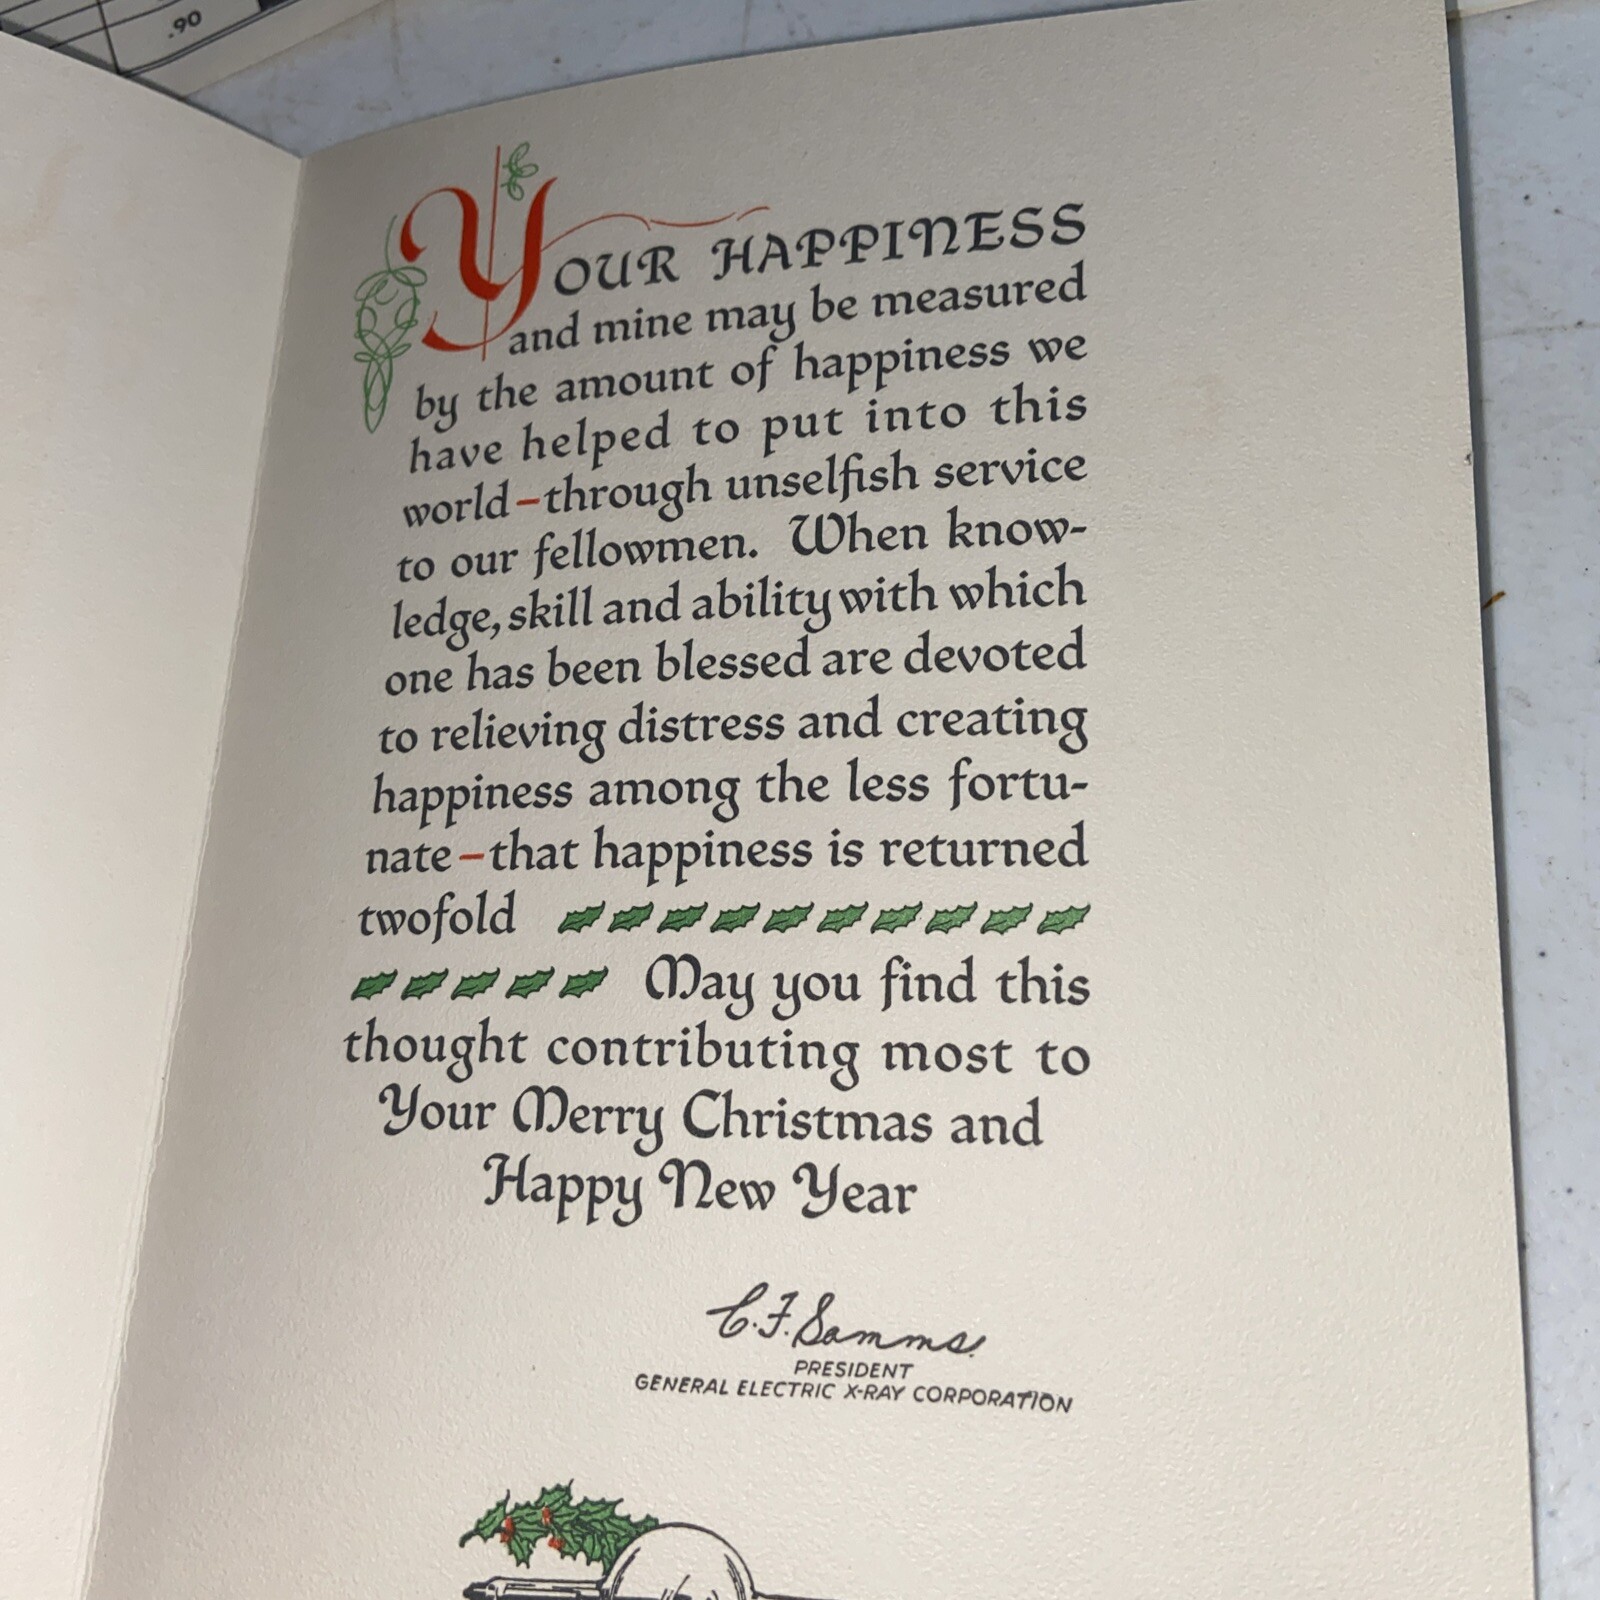 .90
YOUR HAPPINESS
and mine may be measured
by the amount of happiness we
have helped to put into this
world–through unselfish service
to our fellowmen. When know-
ledge, skill and ability with which
one has been blessed are devoted
to relieving distress and creating
happiness among the less fortu-
nate–that happiness is returned
twofold
May you find this
thought contributing most to
Your Merry Christmas and
Happy New Year
C. F. Samms.
PRESIDENT
GENERAL ELECTRIC X-RAY CORPORATION